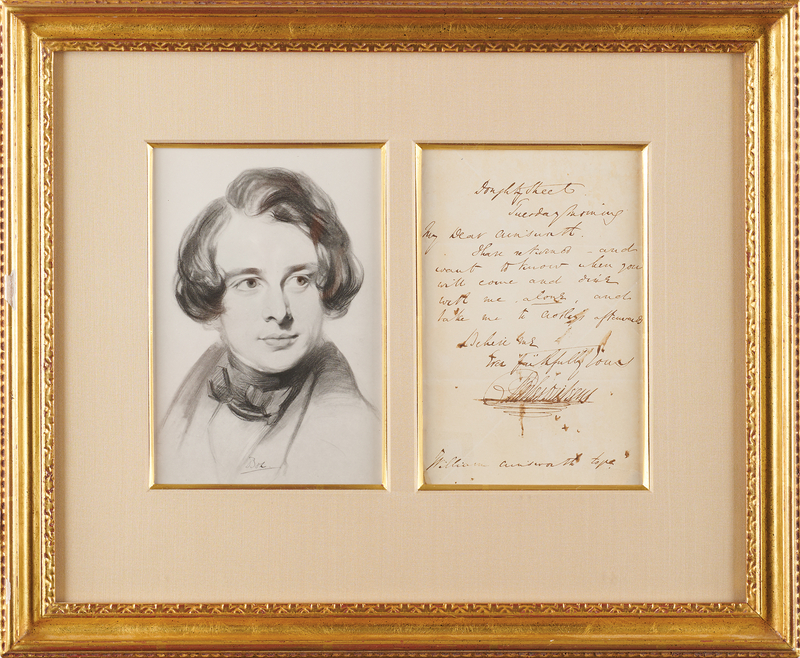 Boz
Doughty Street
Tuesday Morning
My Dear Ainsworth.
I have returned - and
want to know when you
will come and dine
with me alone, and
take me to afterwards
Believe me
Ever faithfully Yours
Charles Dickens
William Ainsworth